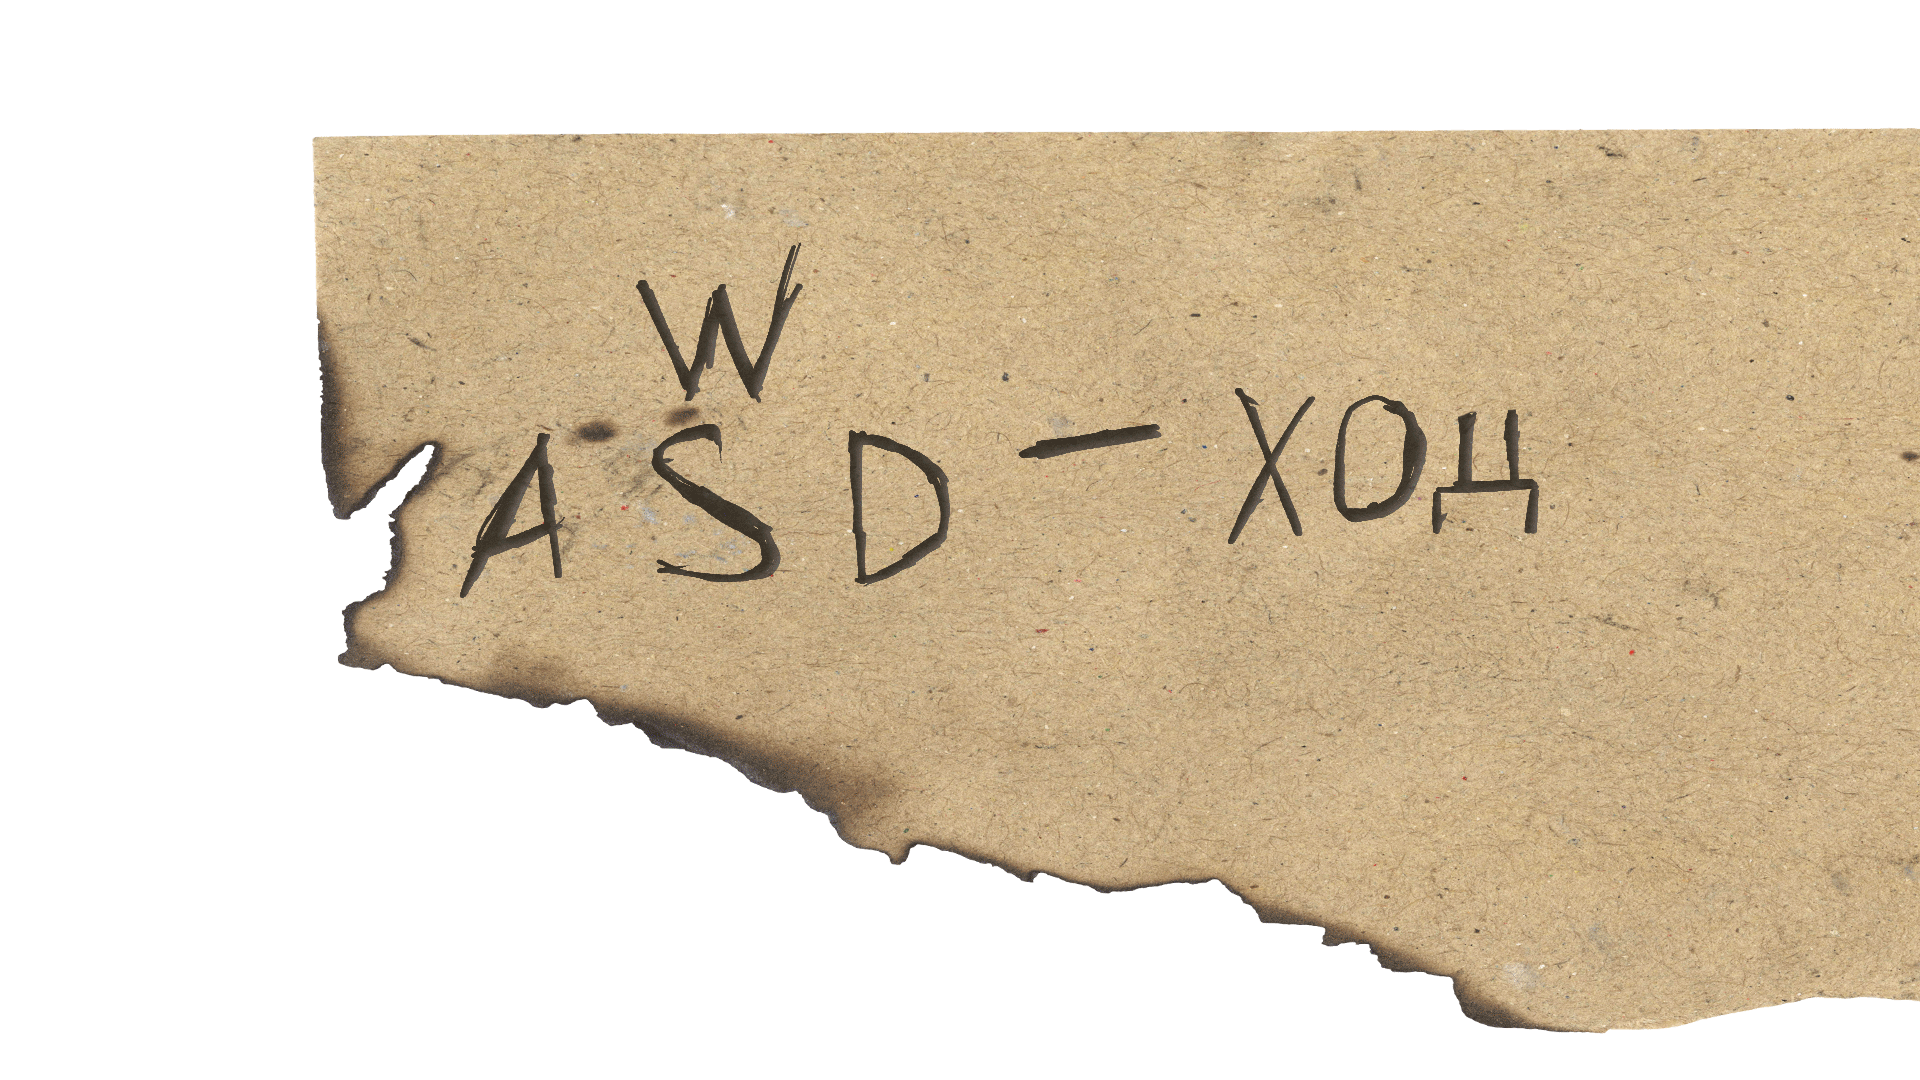 W
A S D - ХОД